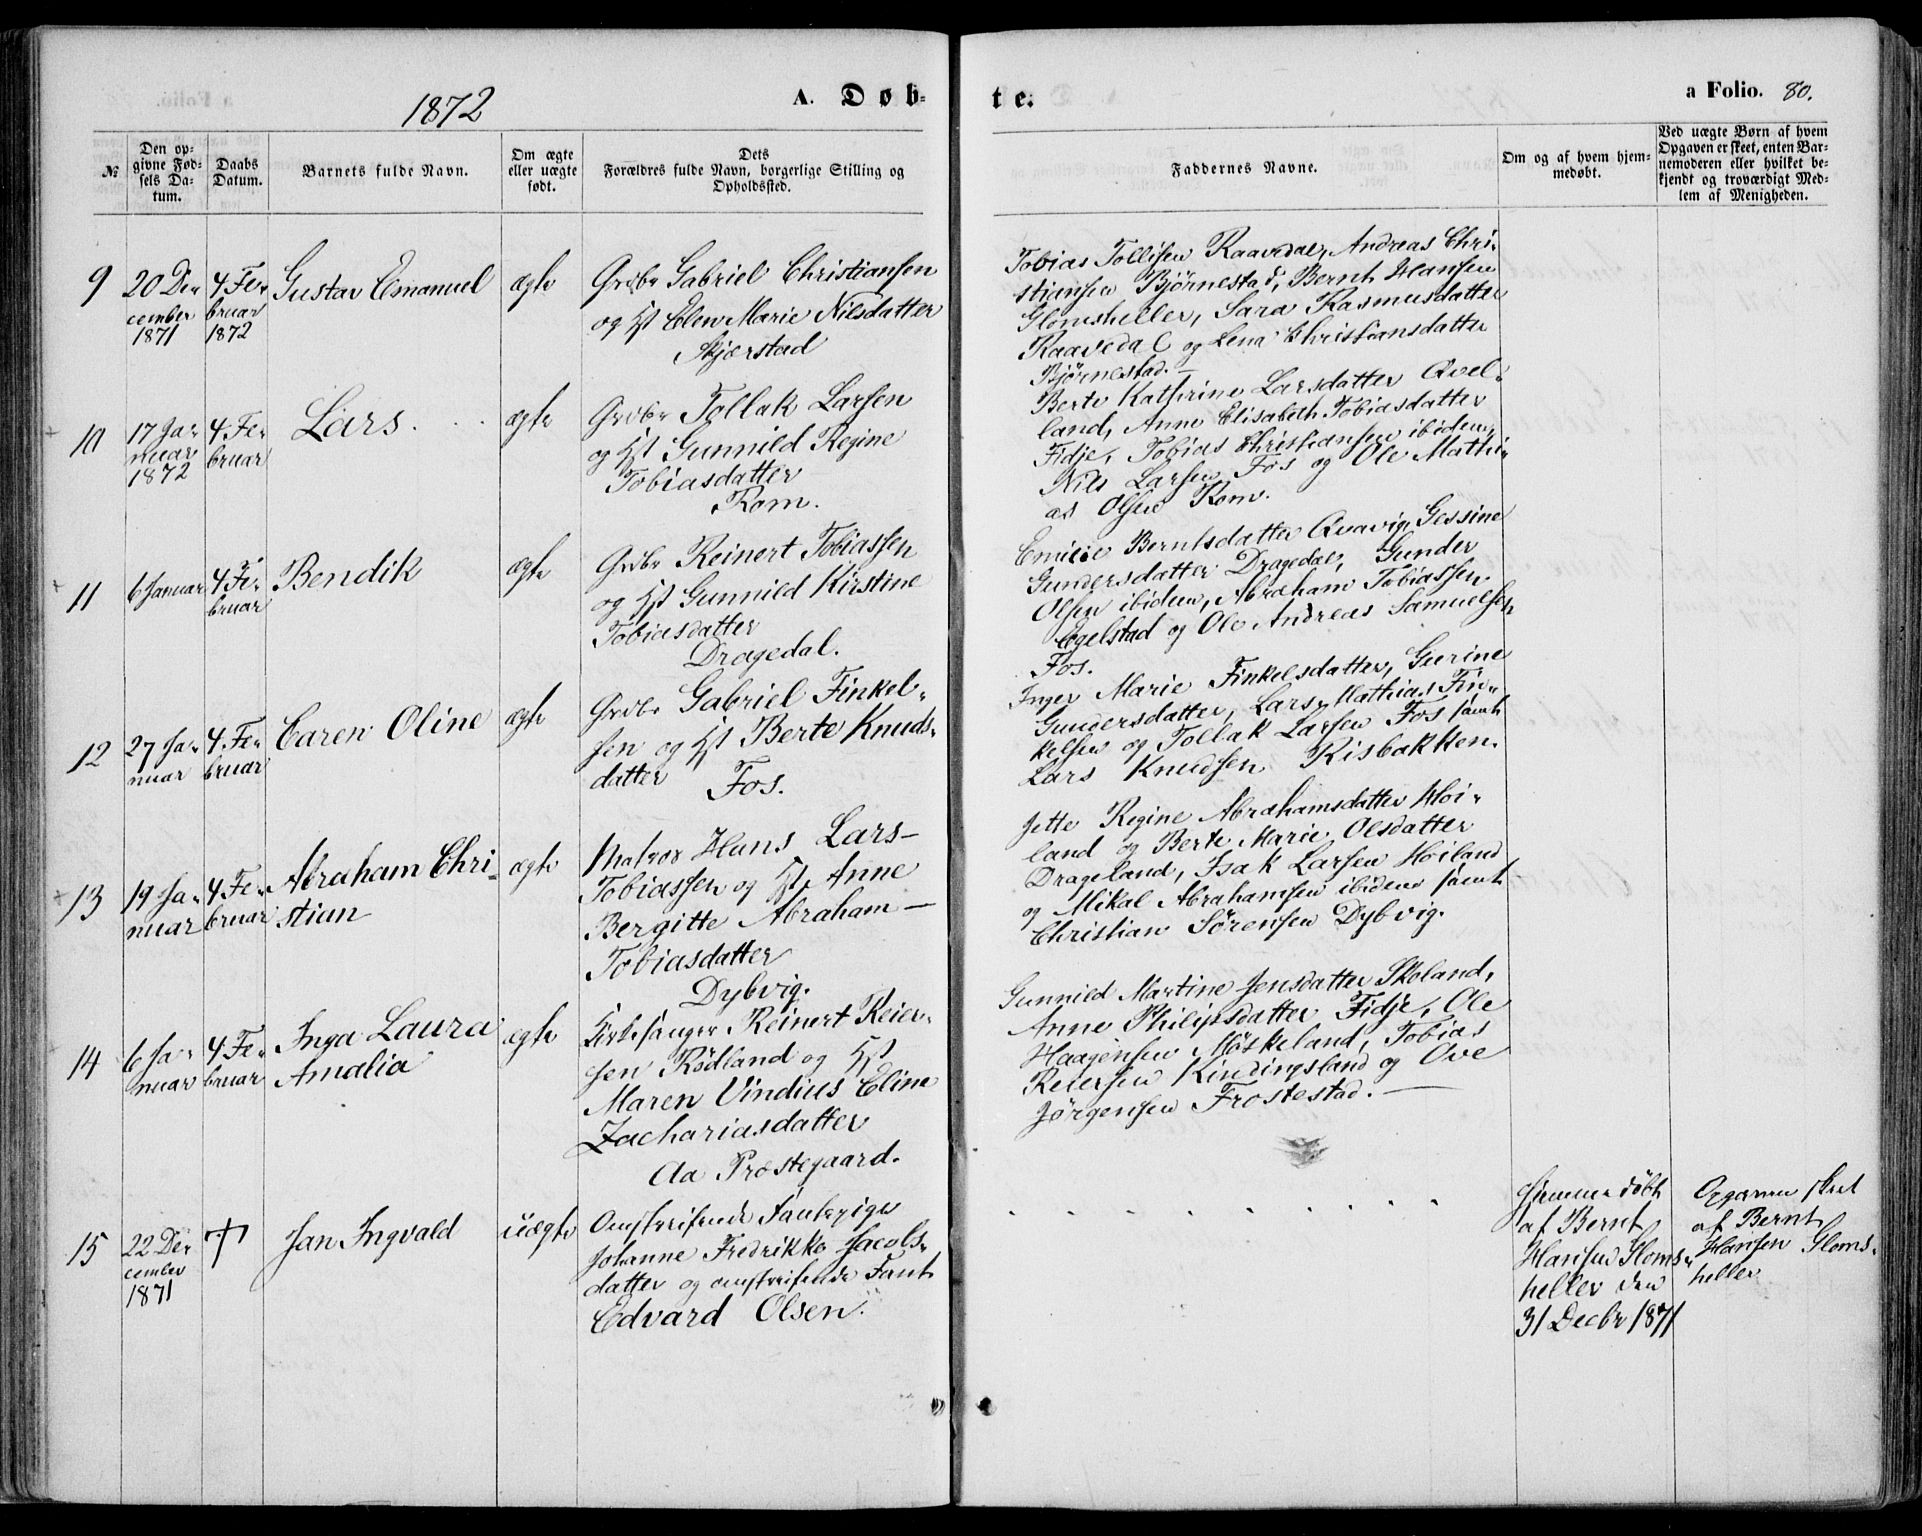 1872
A. Døb-
te.
a Folio. 80.
№
Den op-
givne Fød-
sels Da-
tum.
Daabs
Datum.
Barnets fulde Navn.
Om ægte
eller uægte
født.
Dets
Forældres fulde Navn, borgerlige Stilling og
Opholdssted.
Faddernes Navne.
Om og af hvem hjem-
medøbt.
Ved uægte Børn af hvem
Opgaven er skeet, enten Bar-
nemoderen eller hvilket be-
kjendt og troværdigt Med-
lem af Menigheden.
9
20 De-
cember
1871
4 Fe-
bruar
1872
Gustav Emanuel
ægte
Grdbr Gabriel Christiansen
og Hst Elen Marie Nilsdatter
Skjærstad
Tobias Tollisen Raavedal, Andreas Chri-
stiansen Bjørnestad, Bernt Hansen
Glomsheller, Sara Rasmusdatter
Raavedal og Lena Christiansdatter
Bjørnestad.
10
17 Ja-
nuar
1872
4 Fe-
bruar
Lars.
ægte
Grdbr Tollak Larsen
og Hst Gunnild Regine
Tobiasdatter
Rom.
Berte Kathrine Larsdatter Qvel-
land, Anne Elisabeth Tobiasdatter
Fidje, Tobias Christiansen ibidem,
Nils Larsen Fos og Ole Mathi-
as Olsen Rom.
11
6 Januar
4 Fe-
bruar
Bendik
ægte
Grdbr Reinert Tobiassen
og Hst Gunnild Kirstine
Tobiasdatter
Dragedal.
Emilie Berntsdatter Qvavig, Gessine
Gundersdatter Dragedal, Gunder
Olsen ibidem, Abraham Tobiassen
Egelstad og Ole Andreas Samuelsen
Fos.
12
27 Ja-
nuar
4 Fe-
bruar
Caren Oline
ægte
Grdbr Gabriel Finkel-
sen og Hst Berte Knuds-
datter Fos.
Inger Marie Finkelsdatter, Gurine
Gundersdatter, Lars Mathias Fin-
kelsen og Tollak Larsen Fos samt
Lars Knudsen Risbakken.
13
19 Ja-
nuar
4 Fe-
bruar
Abraham Chri-
stian
ægte
Matros Hans Lars-
Tobiassen og Hst Anne
Bergitte Abraham-
Tobiasdatter
Dybvig.
Jette Regine Abrahamsdatter Høi-
land og Berte Marie Olsdatter
Drageland, Isak Larsen Høiland
og Mikal Abrahamsen ibidem samt
Christian Sørensen Dybvig.
14
6 Ja-
nuar
4 Fe-
bruar
Inga Laura
Amalia
ægte
Kirkesanger Reinert Reier-
sen Rødland og Hst
Maren Vindius Eline
Zachariasdatter
Aa Præstegaard.
Gunnild Martine Jensdatter Skoland,
Anne Philipsdatter Fidje, Ole
Haagensen Møskeland, Tobias
Reiersen Kindingsland og Ove
Jørgensen Frostestad.
15
22 De-
cember
1871
†
Jan Ingvald
uægte
Omstreifende Fantepige
Johanne Fredrikke Jacobs-
datter og omstreifende Fant
Edvard Olsen.
Hjemmedøbt
af Bernt
Hansen Gloms-
heller den
31 Decbr 1871
Opgaven skeet
af Bernt
Hansen Gloms-
heller